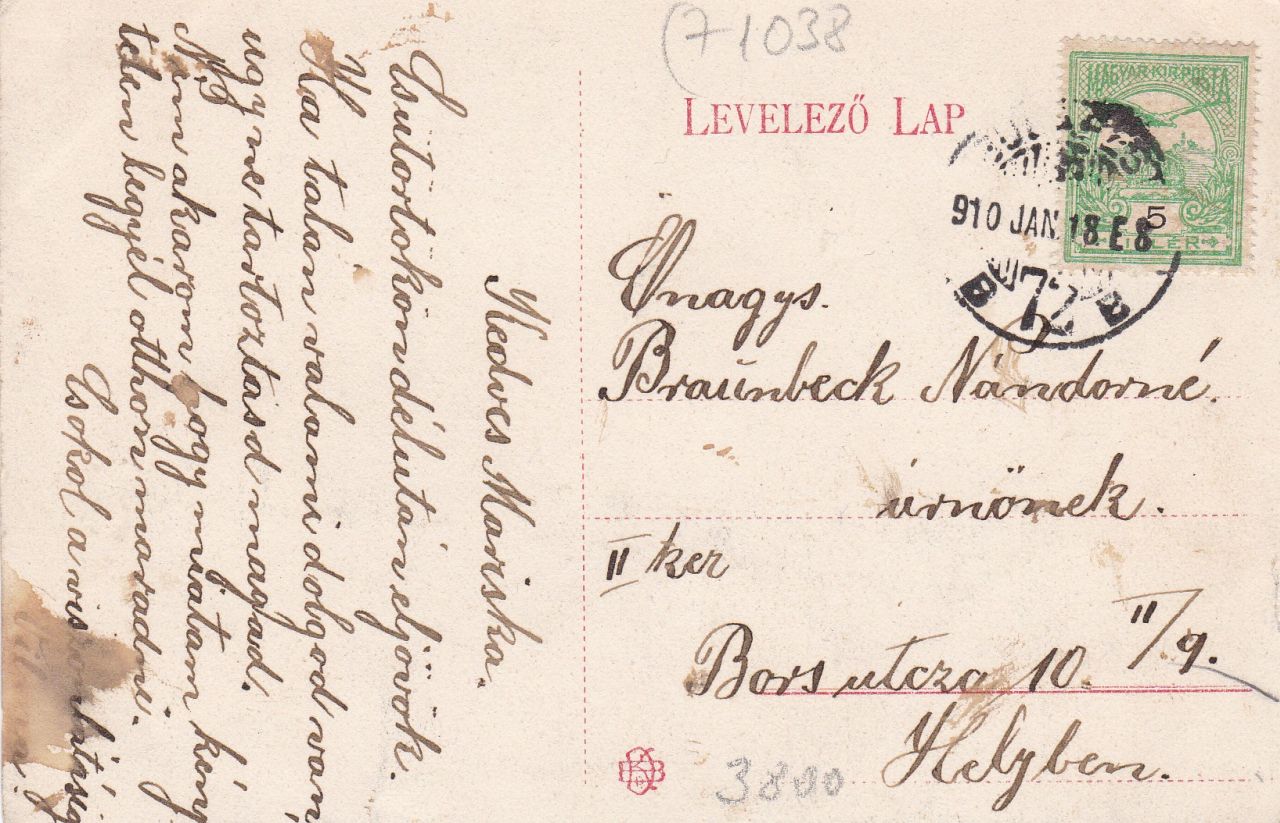 71038
LEVELEZŐ LAP
MAGYAR KIR. POSTA
5
910 JAN. 18. E 8
B 72 B
Önagys.
Braunbeck Nándorné.
úrnőnek.
II ker
Bors utcza 10. II/9.
Helyben.
3800
Kedves Mariska.
Csütörtökön délután eljövök.
Ha talán valami dolgod van
ugy ne tartoztasd magad.
Nem akarom hogy miatam kény
telen legyél otthon maradni.
Csokol a